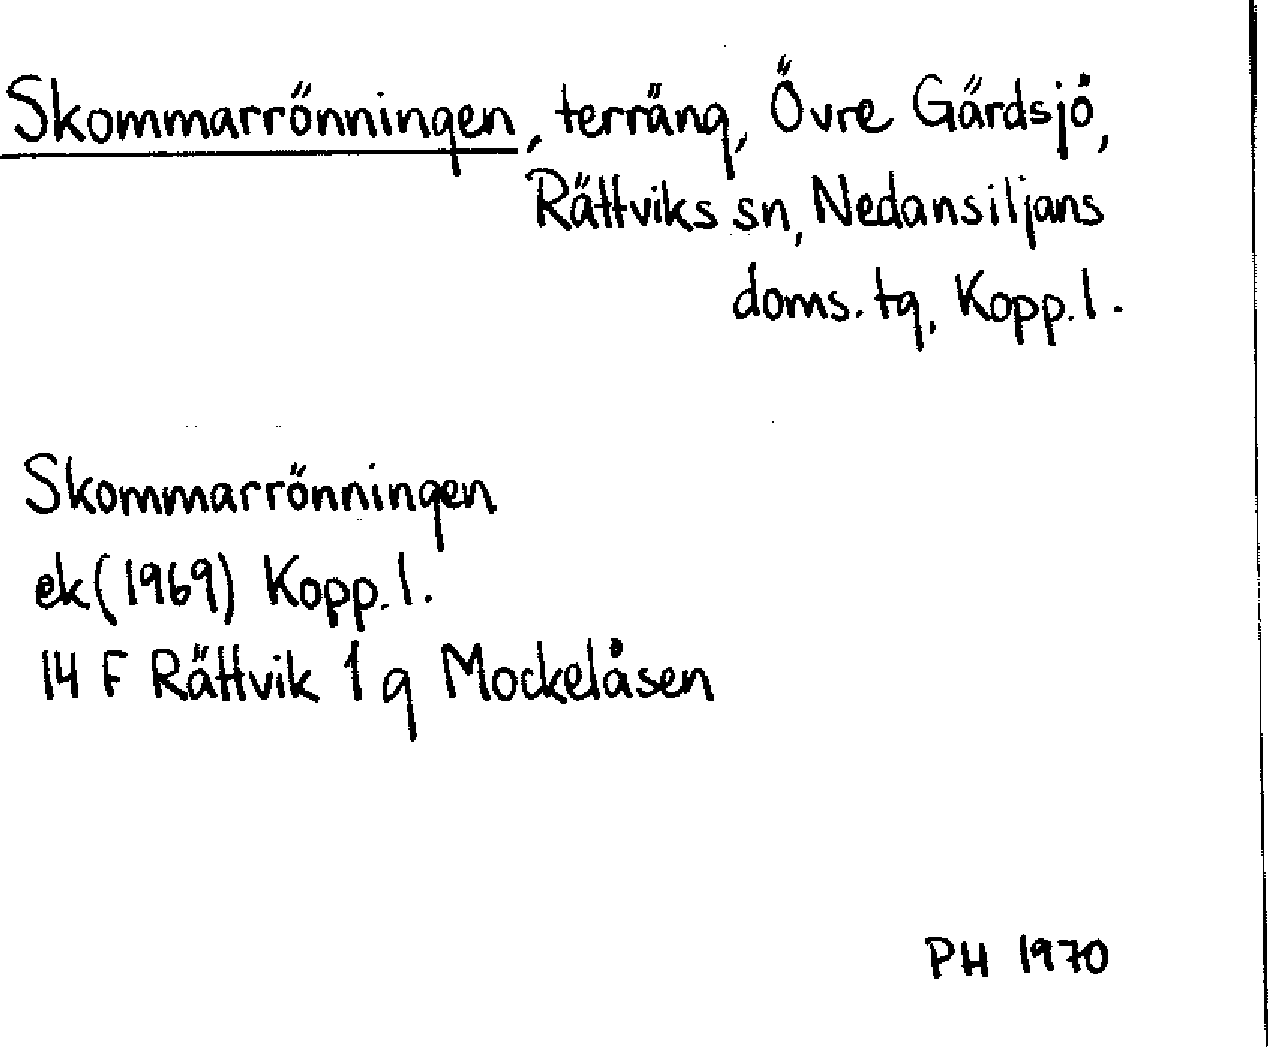 Skommarrönningen, terräng, Övre Gärdsjö,
Rättviks sn, Nedansiljans
doms. tg, Kopp. l.
Skommarrönningen
ek (1969) Kopp. l.
14 F Rättvik 1 g Mockelåsen
PH 1970